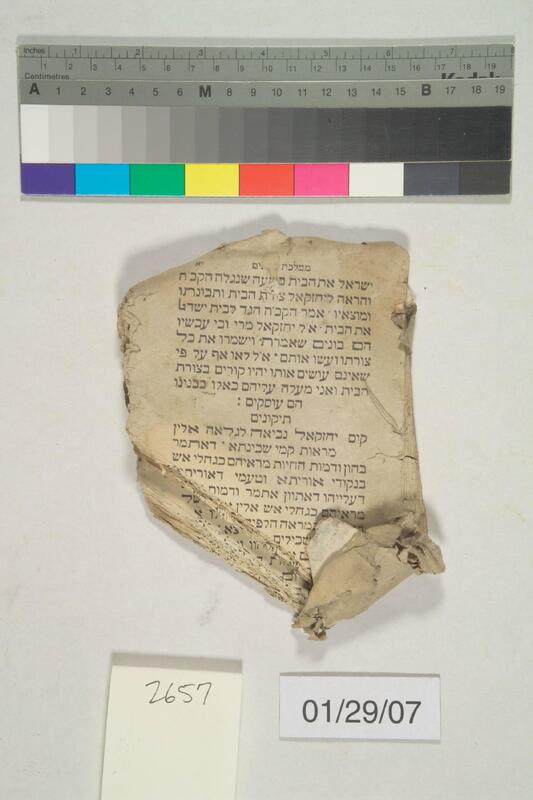 Inches 1 2 3 4 5 6 7 8
Centimetres 1 2 3 4 5 6 7 8 9 10 11 12 13 14 15 16 17 18 19
Kodak
A 1 2 3 4 5 6 M 8 9 10 11 12 13 14 15 B 17 18 19
ממלכת
ישראל את הבית שנגלה הקב״ה
והראה ליחזקאל צורת הבית ותכונתו
ומוצאיו אמר הקב״ה הגד לבית ישראל
את הבית א״ל יחזקאל מרי וכי עכשיו
הם בונים שאמרת וישמרו את כל
צורתו ועשו אותם א״ל לאו אף על פי
שאינם עושים אותו יהיו קורים בצורת
הבית ואני מעלה עליהם כאלו בבנינו
הם עוסקים :
תיקונים
קום יחזקאל נביאה לגלאה אלין
מראות קמי שכינתא דאתמר
בהון ודמות החיות מראיהם כגחלי אש
בנקודי אוריתא וטעמי
דעלייהו דאתוון אתמר ודמות
מראיהם כגחלי אש אלין
כמראה
2657
01/29/07